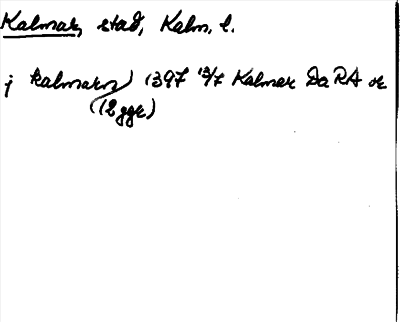 Kalmar, stad, Kalm. l.
j kalmarn) 1397 13/7 Kalmar DaRA or
(2 ggr)